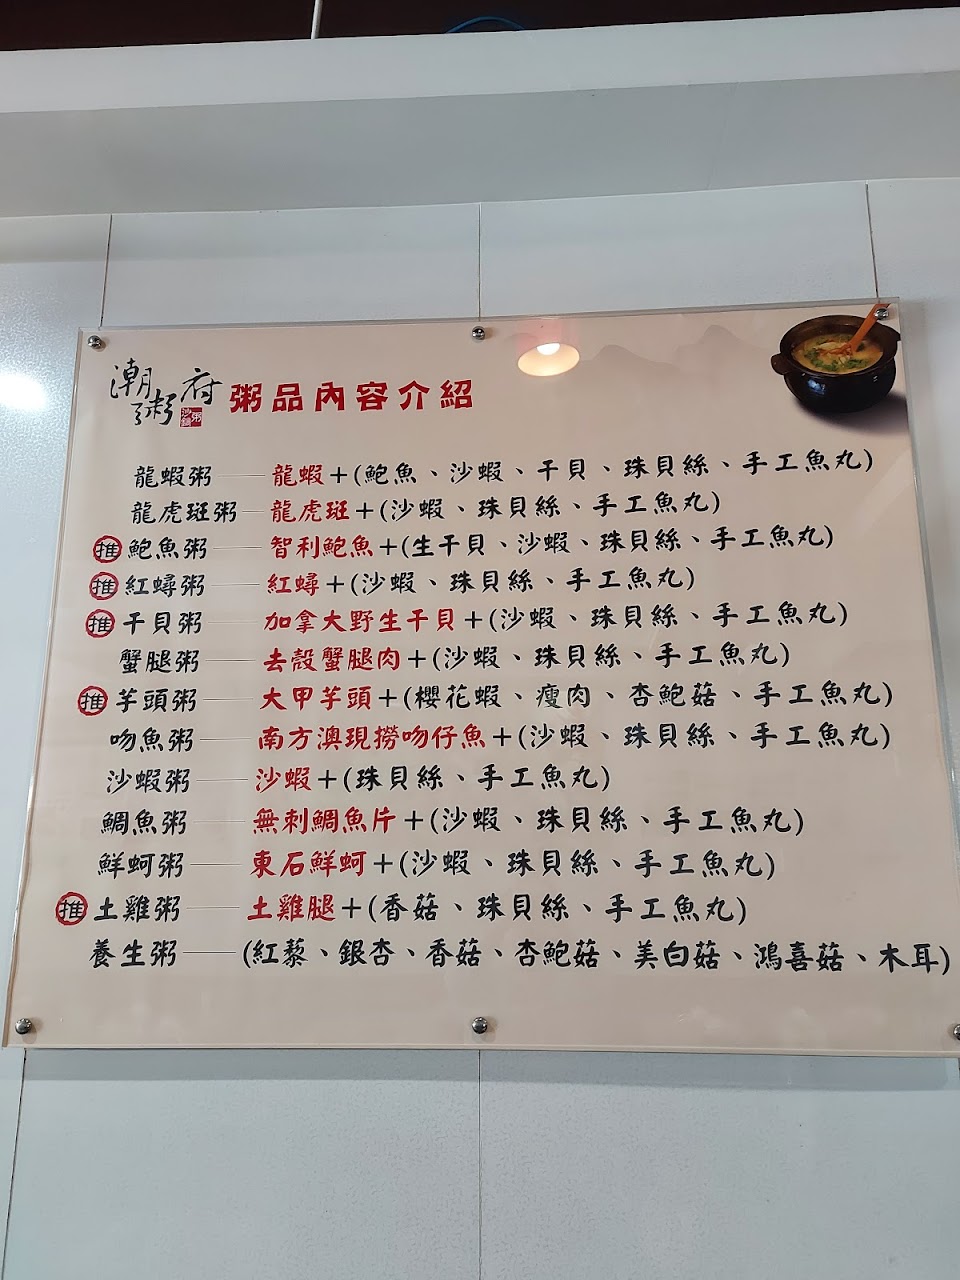 潮粥府 沙鍋粥 粥品內容介紹
龍蝦粥——龍蝦+(鮑魚、沙蝦、干貝、珠貝絲、手工魚丸)
龍虎斑粥—龍虎斑+(沙蝦、珠貝絲、手工魚丸)
推 鮑魚粥——智利鮑魚+(生干貝、沙蝦、珠貝絲、手工魚丸)
推 紅蟳粥——紅蟳+(沙蝦、珠貝絲、手工魚丸)
推 干貝粥——加拿大野生干貝+(沙蝦、珠貝絲、手工魚丸)
蟹腿粥——去殼蟹腿肉+(沙蝦、珠貝絲、手工魚丸)
推 芋頭粥——大甲芋頭+(櫻花蝦、瘦肉、杏鮑菇、手工魚丸)
吻魚粥——南方澳現撈吻仔魚+(沙蝦、珠貝絲、手工魚丸)
沙蝦粥——沙蝦+(珠貝絲、手工魚丸)
鯛魚粥——無刺鯛魚片+(沙蝦、珠貝絲、手工魚丸)
鮮蚵粥——東石鮮蚵+(沙蝦、珠貝絲、手工魚丸)
推 土雞粥——土雞腿+(香菇、珠貝絲、手工魚丸)
養生粥——(紅藜、銀杏、香菇、杏鮑菇、美白菇、鴻喜菇、木耳)